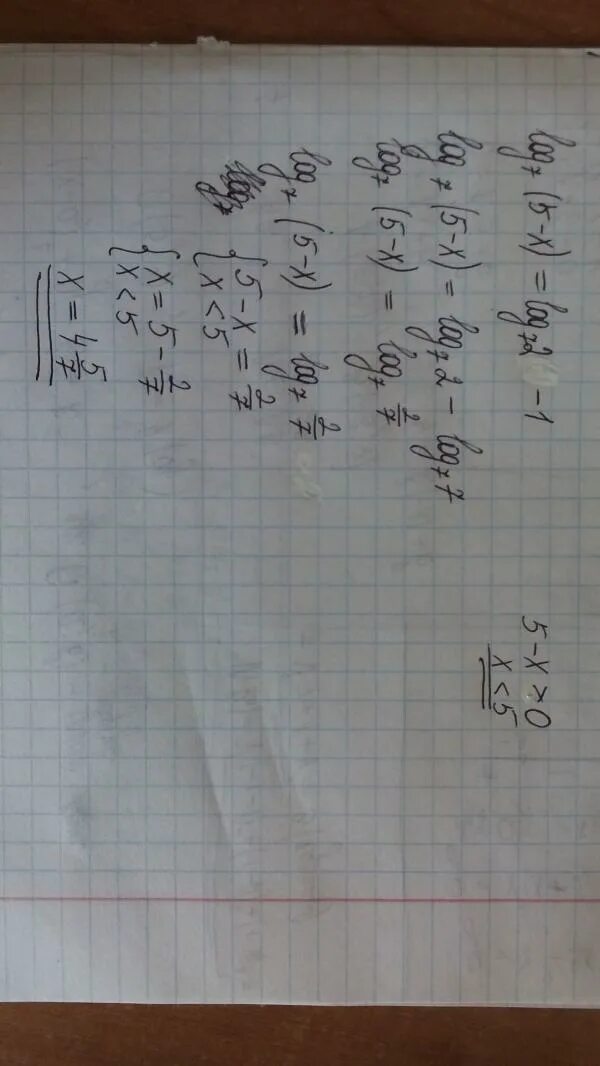 log₇ (5-x) = log₇2 - 1
5-x > 0
x < 5
log₇ (5-x) = log₇2 - log₇7
log₇ (5-x) = log₇ 2/7
log₇ (5-x) = log₇ 2/7
{ 5-x = 2/7
x < 5
{ x = 5 - 2/7
x < 5
x = 4 5/7